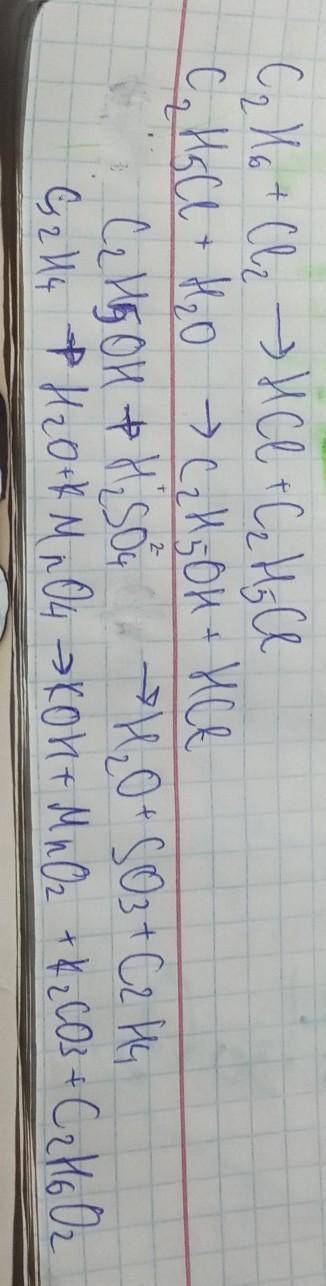 C₂H₆ + Cl₂ → HCl + C₂H₅Cl
C₂H₅Cl + H₂O → C₂H₅OH + HCl
C₂H₅OH + H₂⁺SO₄²  → H₂O + SO₃ + C₂H₄
C₂H₄ + H₂O + KMnO₄ → KOH + MnO₂ + K₂CO₃ + C₂H₆O₂